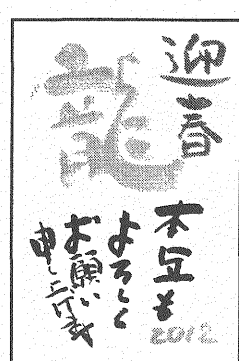 迎春
龍
本年も
よろしく
お願い
申し上げます
2012